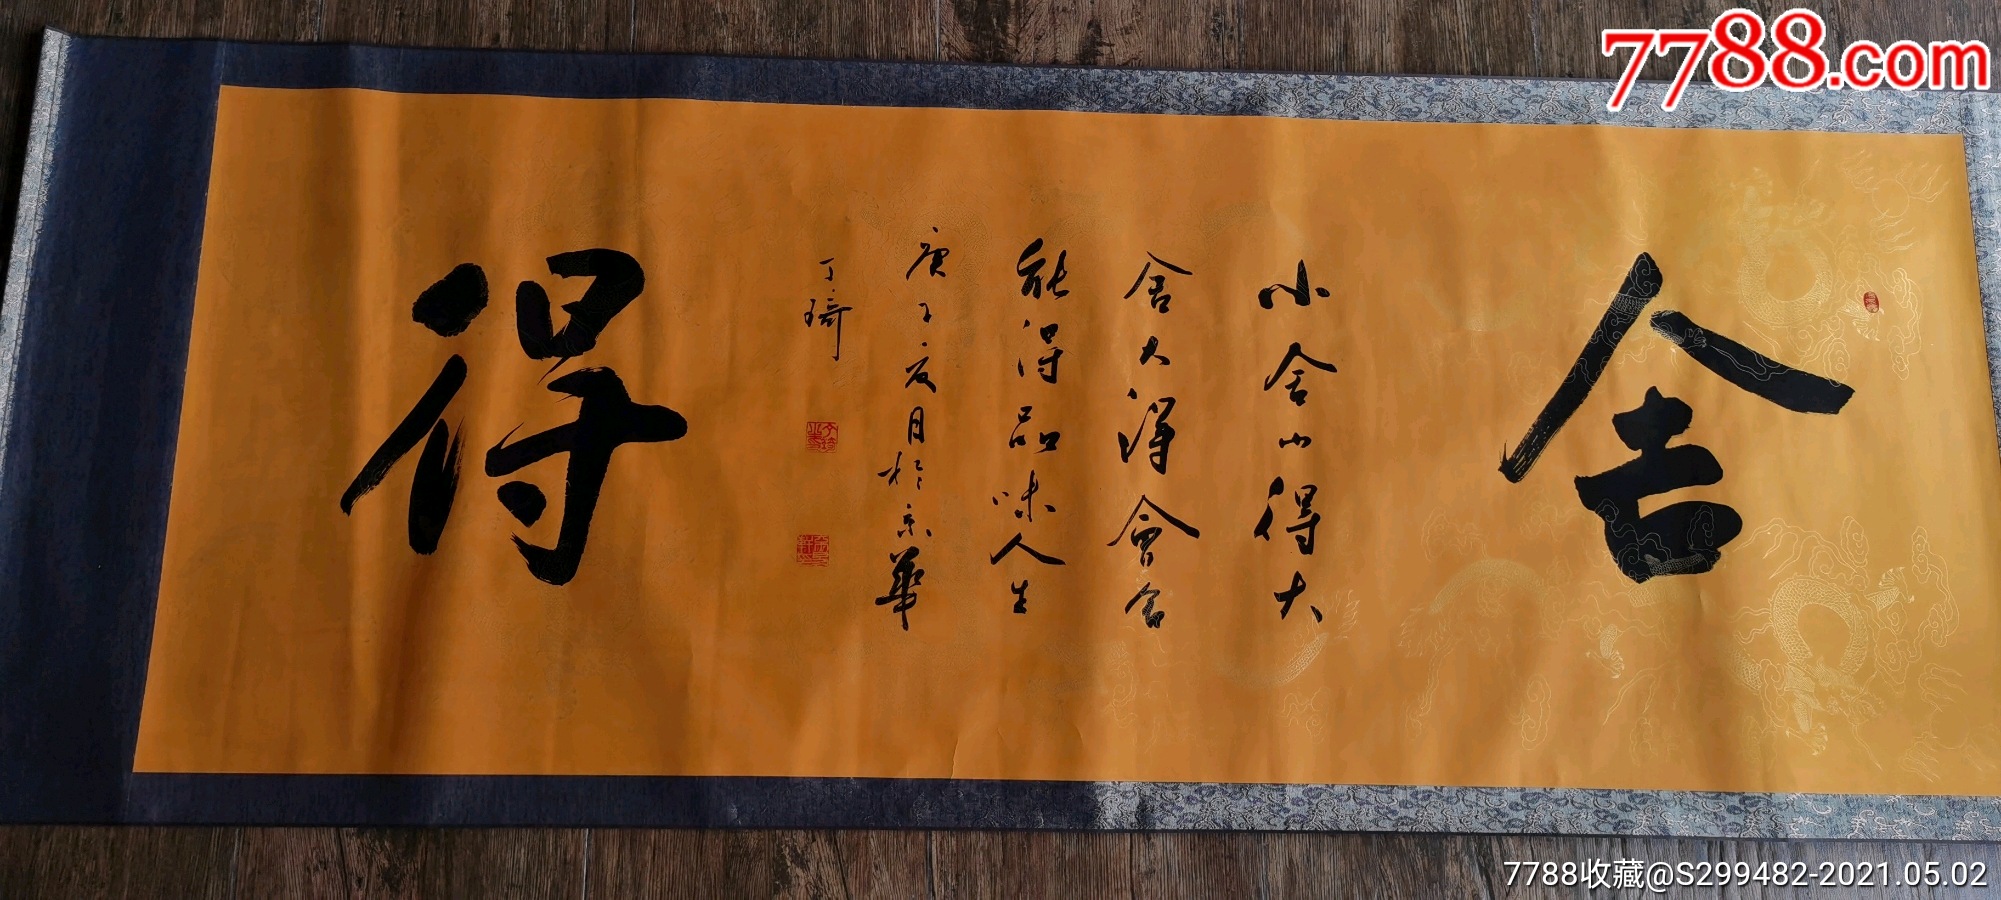 舍
小舍小得大
舍大得會舍
能得品味人生
庚子夏月於京華
丁琦
得
7788.com
7788收藏@S299482-2021.05.02